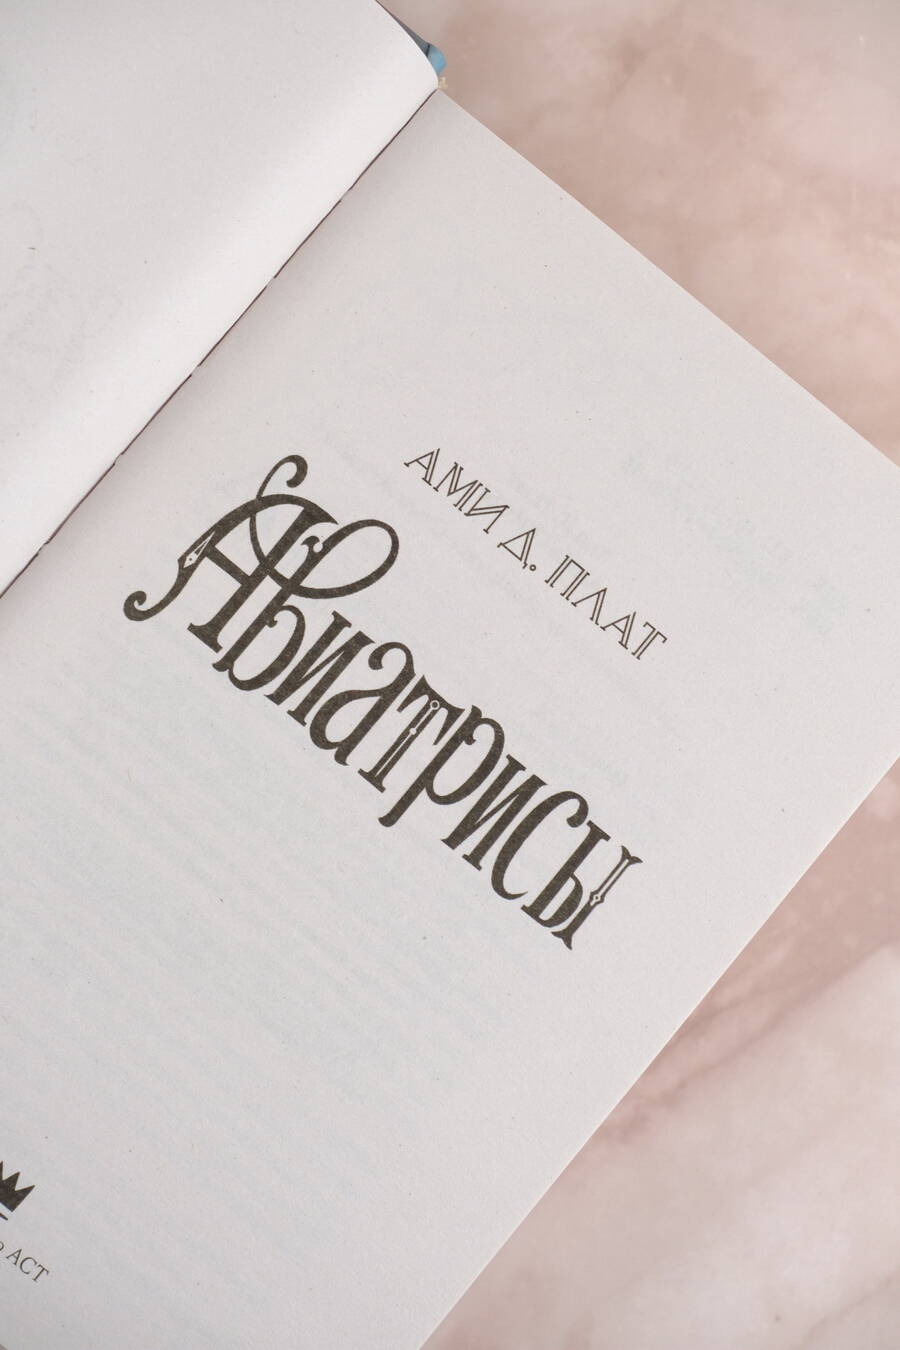 АМИ Д. ПЛАТ
Авиатрисы
АСТ